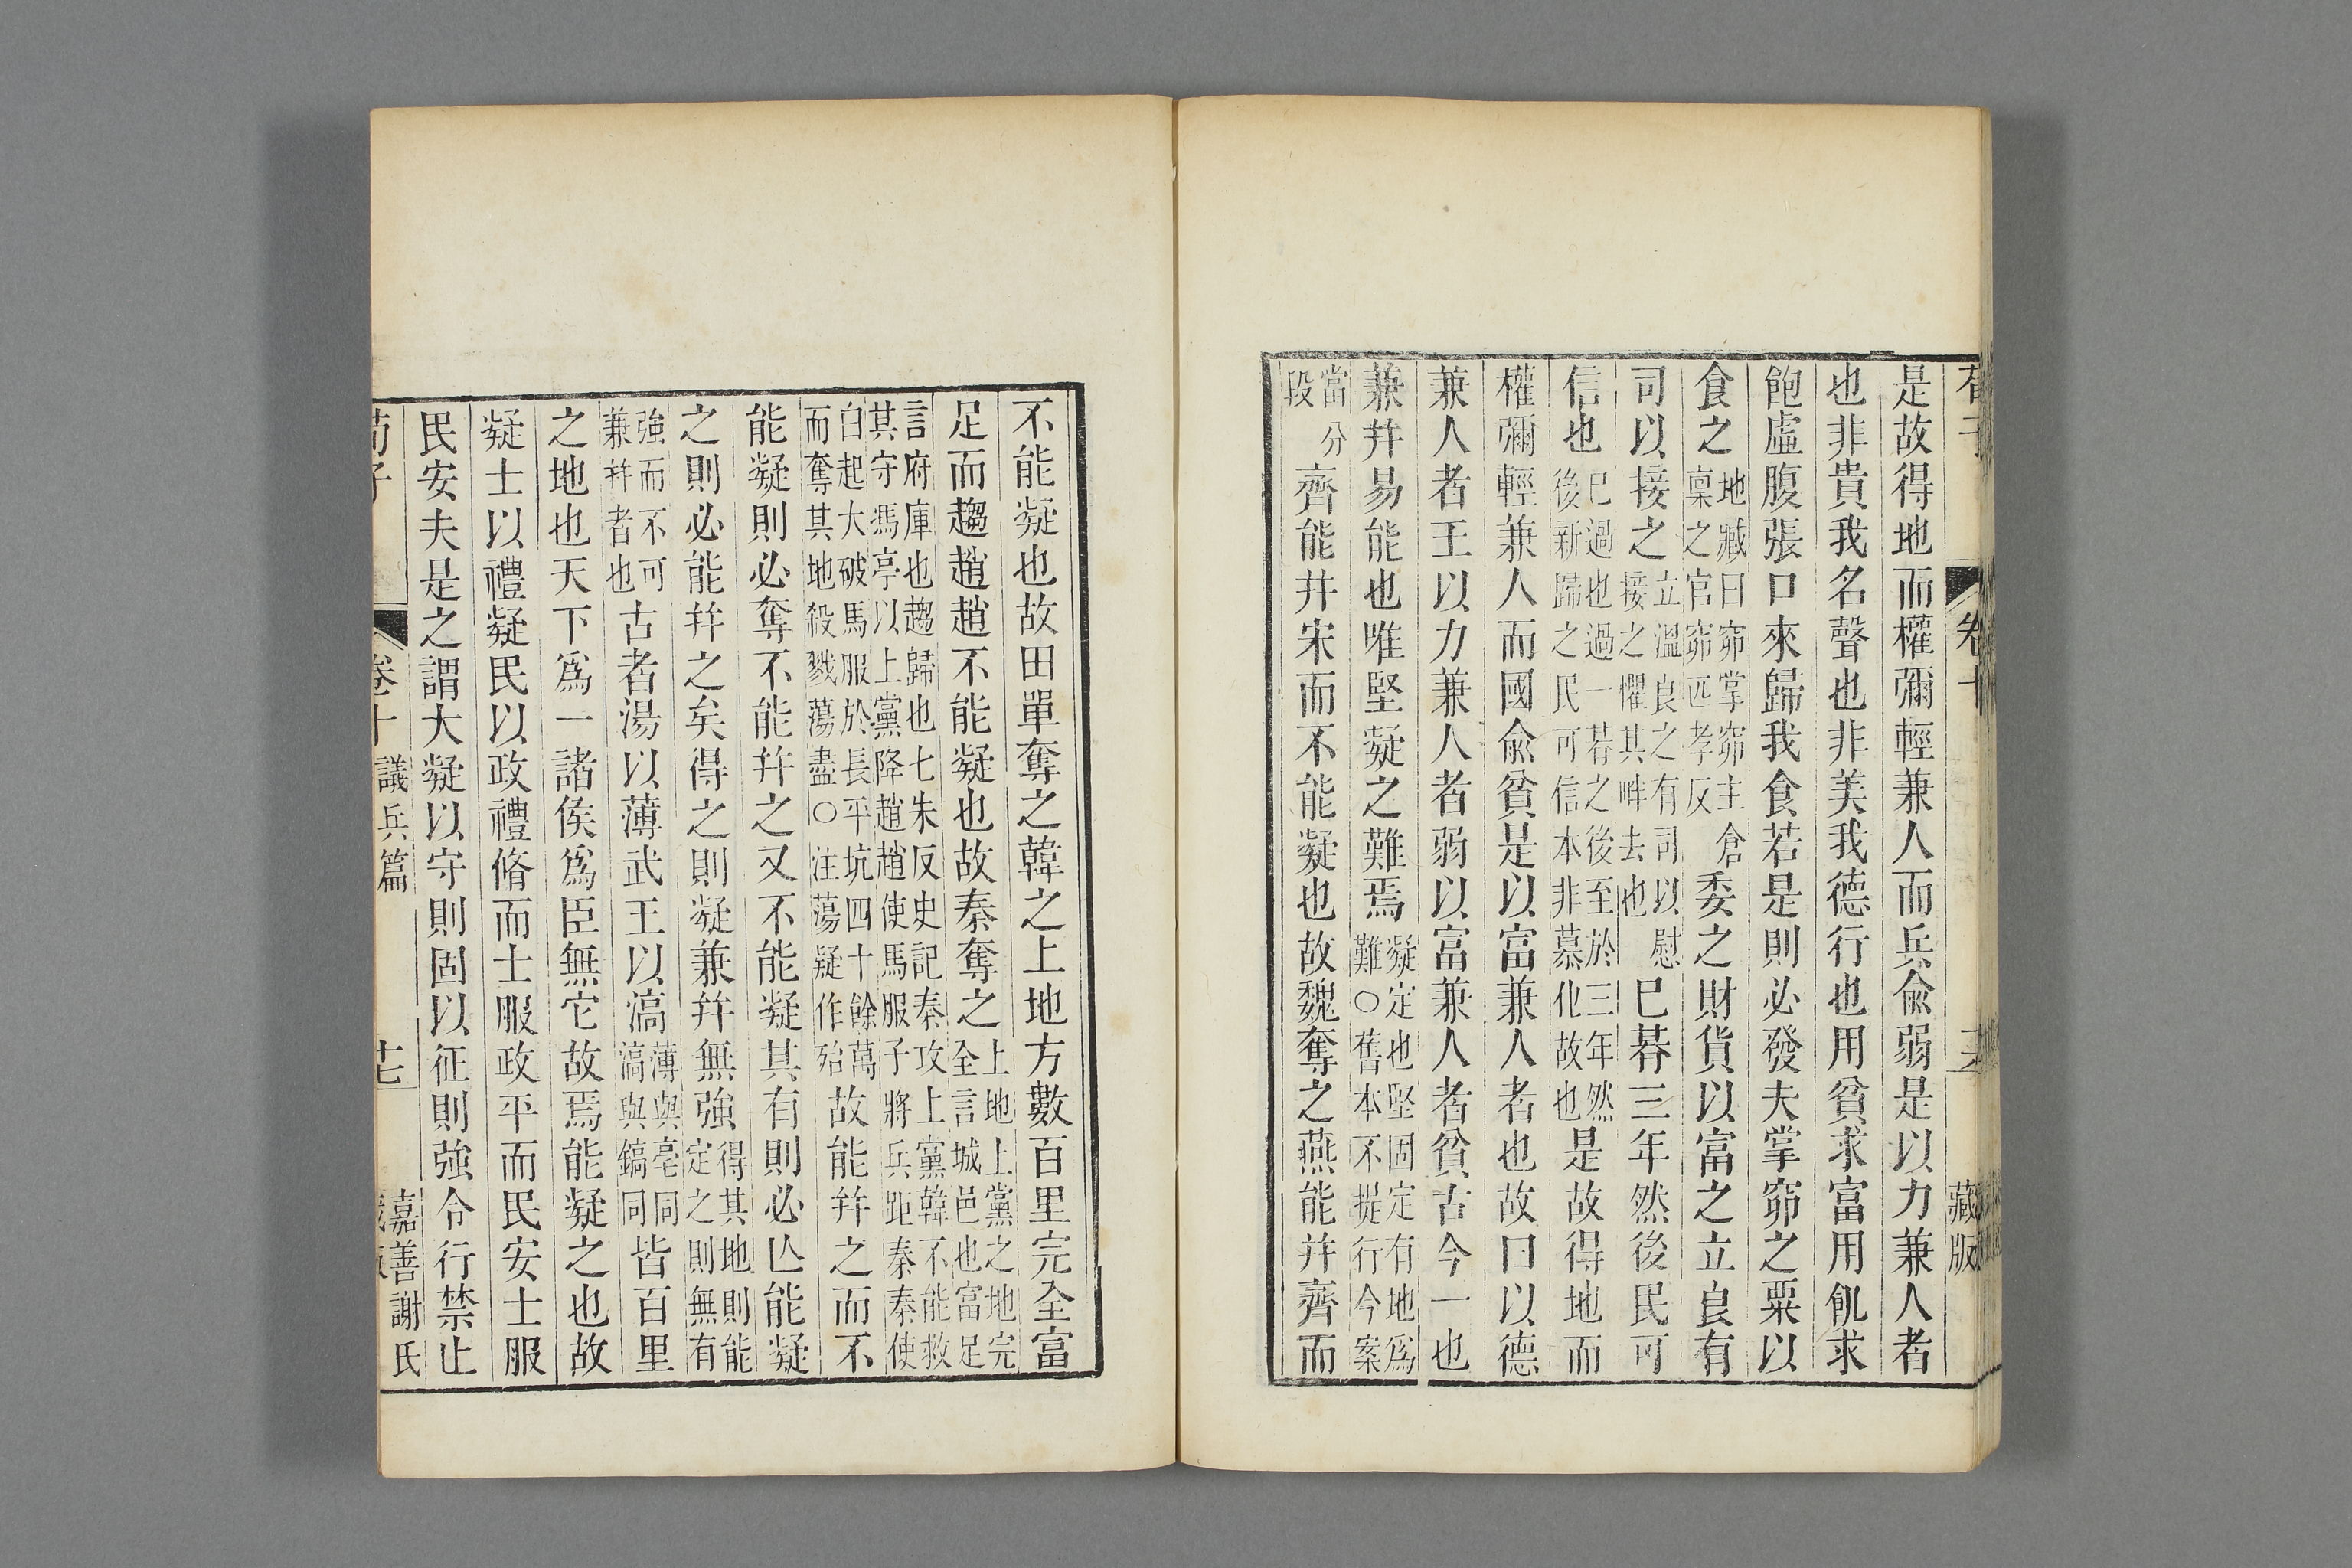 荀子 卷十 十六 藏版
是故得地而權彌輕兼人而兵俞弱是以力兼人者
也非貴我名聲也非美我德行也用貧求富用飢求
飽虛腹張口來歸我食若是則必發夫掌窌之粟以
食之地臧曰窌掌窌主倉稟之官窌匹孝反委之財貨以富之立良有
司以接之立溫良之有司以慰接之懼其畔去也巳朞三年然後民可
信也巳過也過一朞之後至於三年然後新歸之民可信本非慕化故也是故得地而
權彌輕兼人而國俞貧是以富兼人者也故曰以德
兼人者王以力兼人者弱以富兼人者貧古今一也
兼幷易能也唯堅凝之難焉凝定也堅固定有地爲難○舊本不提行今案
當分段齊能幷宋而不能凝也故魏奪之燕能幷齊而
不能凝也故田單奪之韓之上地方數百里完全富
足而趨趙趙不能凝也故秦奪之上地上黨之地完全言城邑也富足
言府庫也趨歸也七朱反史記秦攻上黨韓不能救其守馮亭以上黨降趙趙使馬服子將兵距秦秦使
白起大破馬服於長平坑四十餘萬而奪其地殺戮蕩盡○注蕩凝作殆故能幷之而不
能凝則必奪不能幷之又不能凝其有則必亾能凝
之則必能幷之矣得之則凝兼幷無強得其地則能定之則無有
強而不可兼幷者也古者湯以薄武王以滈薄與亳同滈與鎬同皆百里
之地也天下爲一諸侯爲臣無它故焉能凝之也故
凝士以禮凝民以政禮脩而士服政平而民安士服
民安夫是之謂大凝以守則固以征則強令行禁止
荀子 卷十 議兵篇 十七 嘉善謝氏藏版